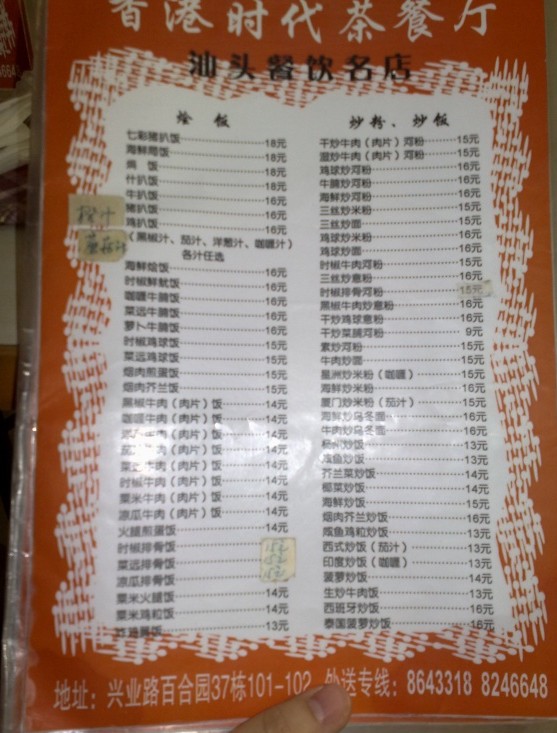 香港时代茶餐厅
汕头餐饮名店
烩 饭
七彩猪扒饭 18元
海鲜焗饭 18元
焗 饭 18元
什扒饭 18元
牛扒饭 16元
猪扒饭 16元
鸡扒饭 16元
（黑椒汁、茄汁、洋葱汁、咖喱汁）
各汁任选
海鲜烩饭 16元
时椒鲜鱿饭 16元
咖喱牛腩饭 16元
菜远牛腩饭 16元
萝卜牛腩饭 16元
时椒鸡球饭 15元
菜远鸡球饭 15元
烟肉煎蛋饭 15元
烟肉芥兰饭 15元
黑椒牛肉（肉片）饭 14元
咖喱牛肉（肉片）饭 14元
牛肉（肉片）饭 14元
茄汁牛肉（肉片）饭 14元
菜远牛肉（肉片）饭 14元
时椒牛肉（肉片）饭 14元
粟米牛肉（肉片）饭 14元
凉瓜牛肉（肉片）饭 14元
火腿煎蛋饭 14元
时椒排骨饭
菜远排骨饭
凉瓜排骨饭
粟米火腿饭 14元
粟米鸡粒饭 14元
13元
炒粉、炒饭
干炒牛肉（肉片）河粉 15元
湿炒牛肉（肉片）河粉 15元
鸡球炒河粉 16元
牛腩炒河粉 16元
海鲜炒河粉 16元
三丝炒米粉 15元
三丝炒面 15元
鸡球炒米粉 16元
鸡球炒面 16元
时椒牛肉河粉 15元
三丝炒意粉 16元
时椒排骨河粉 15元
黑椒牛肉炒意粉 16元
干炒鸡球意粉 16元
干炒菜脯河粉 9元
素炒河粉 15元
牛肉炒面 15元
星洲炒米粉（咖喱） 15元
海鲜炒米粉 16元
厦门炒米粉（茄汁） 15元
海鲜炒乌冬面 16元
牛肉炒乌冬面 16元
扬州炒饭 13元
咸鱼炒饭 13元
芥兰菜炒饭 14元
椰菜炒饭 14元
海鲜炒饭 15元
烟肉芥兰炒饭 16元
咸鱼鸡粒炒饭 13元
西式炒饭（茄汁） 13元
印度炒饭（咖喱） 13元
菠萝炒饭 14元
生炒牛肉饭 13元
西班牙炒饭 16元
泰国菠萝炒饭 16元
橙汁
蘑菇汁
地址：兴业路百合园37栋101-102 外送专线：8643318 8246648